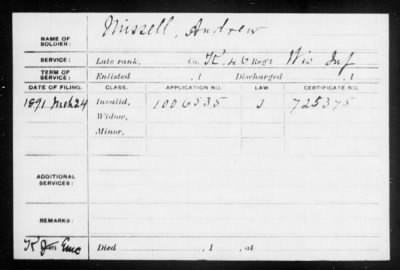 NAME OF SOLDIER: Missell, Andrew
SERVICE: Late rank, Co. K, 46 Reg't Wis Inf
TERM OF SERVICE: Enlisted , 1 Discharged , 1
DATE OF FILING. CLASS. APPLICATION NO. LAW. CERTIFICATE NO.
1891 Mch 24 Invalid, 1006535 J 725375
Widow,
Minor,
ADDITIONAL SERVICES:
REMARKS:
Died , 1 , at